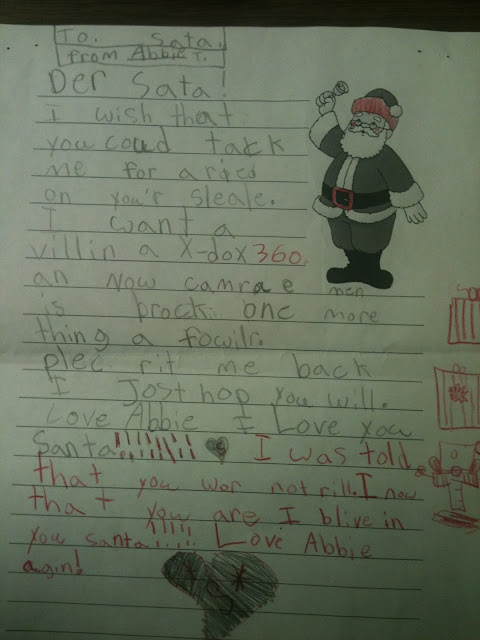 To. Sata.
from Abbie T.
Der Sata!
I wish that
you coud tack
me for a ried
on you'r sleale.
I want a
villin a X-dox 360.
an Now camra e men
is brock. one more
thing a fowilr.
plec rit me back
I Jost hop you will.
Love Abbie I Love you
Santa!!!!!!!! I was told
that you wor not rill. I now
that you are I blive in
you santa!!!!! Love Abbie
agin!
S